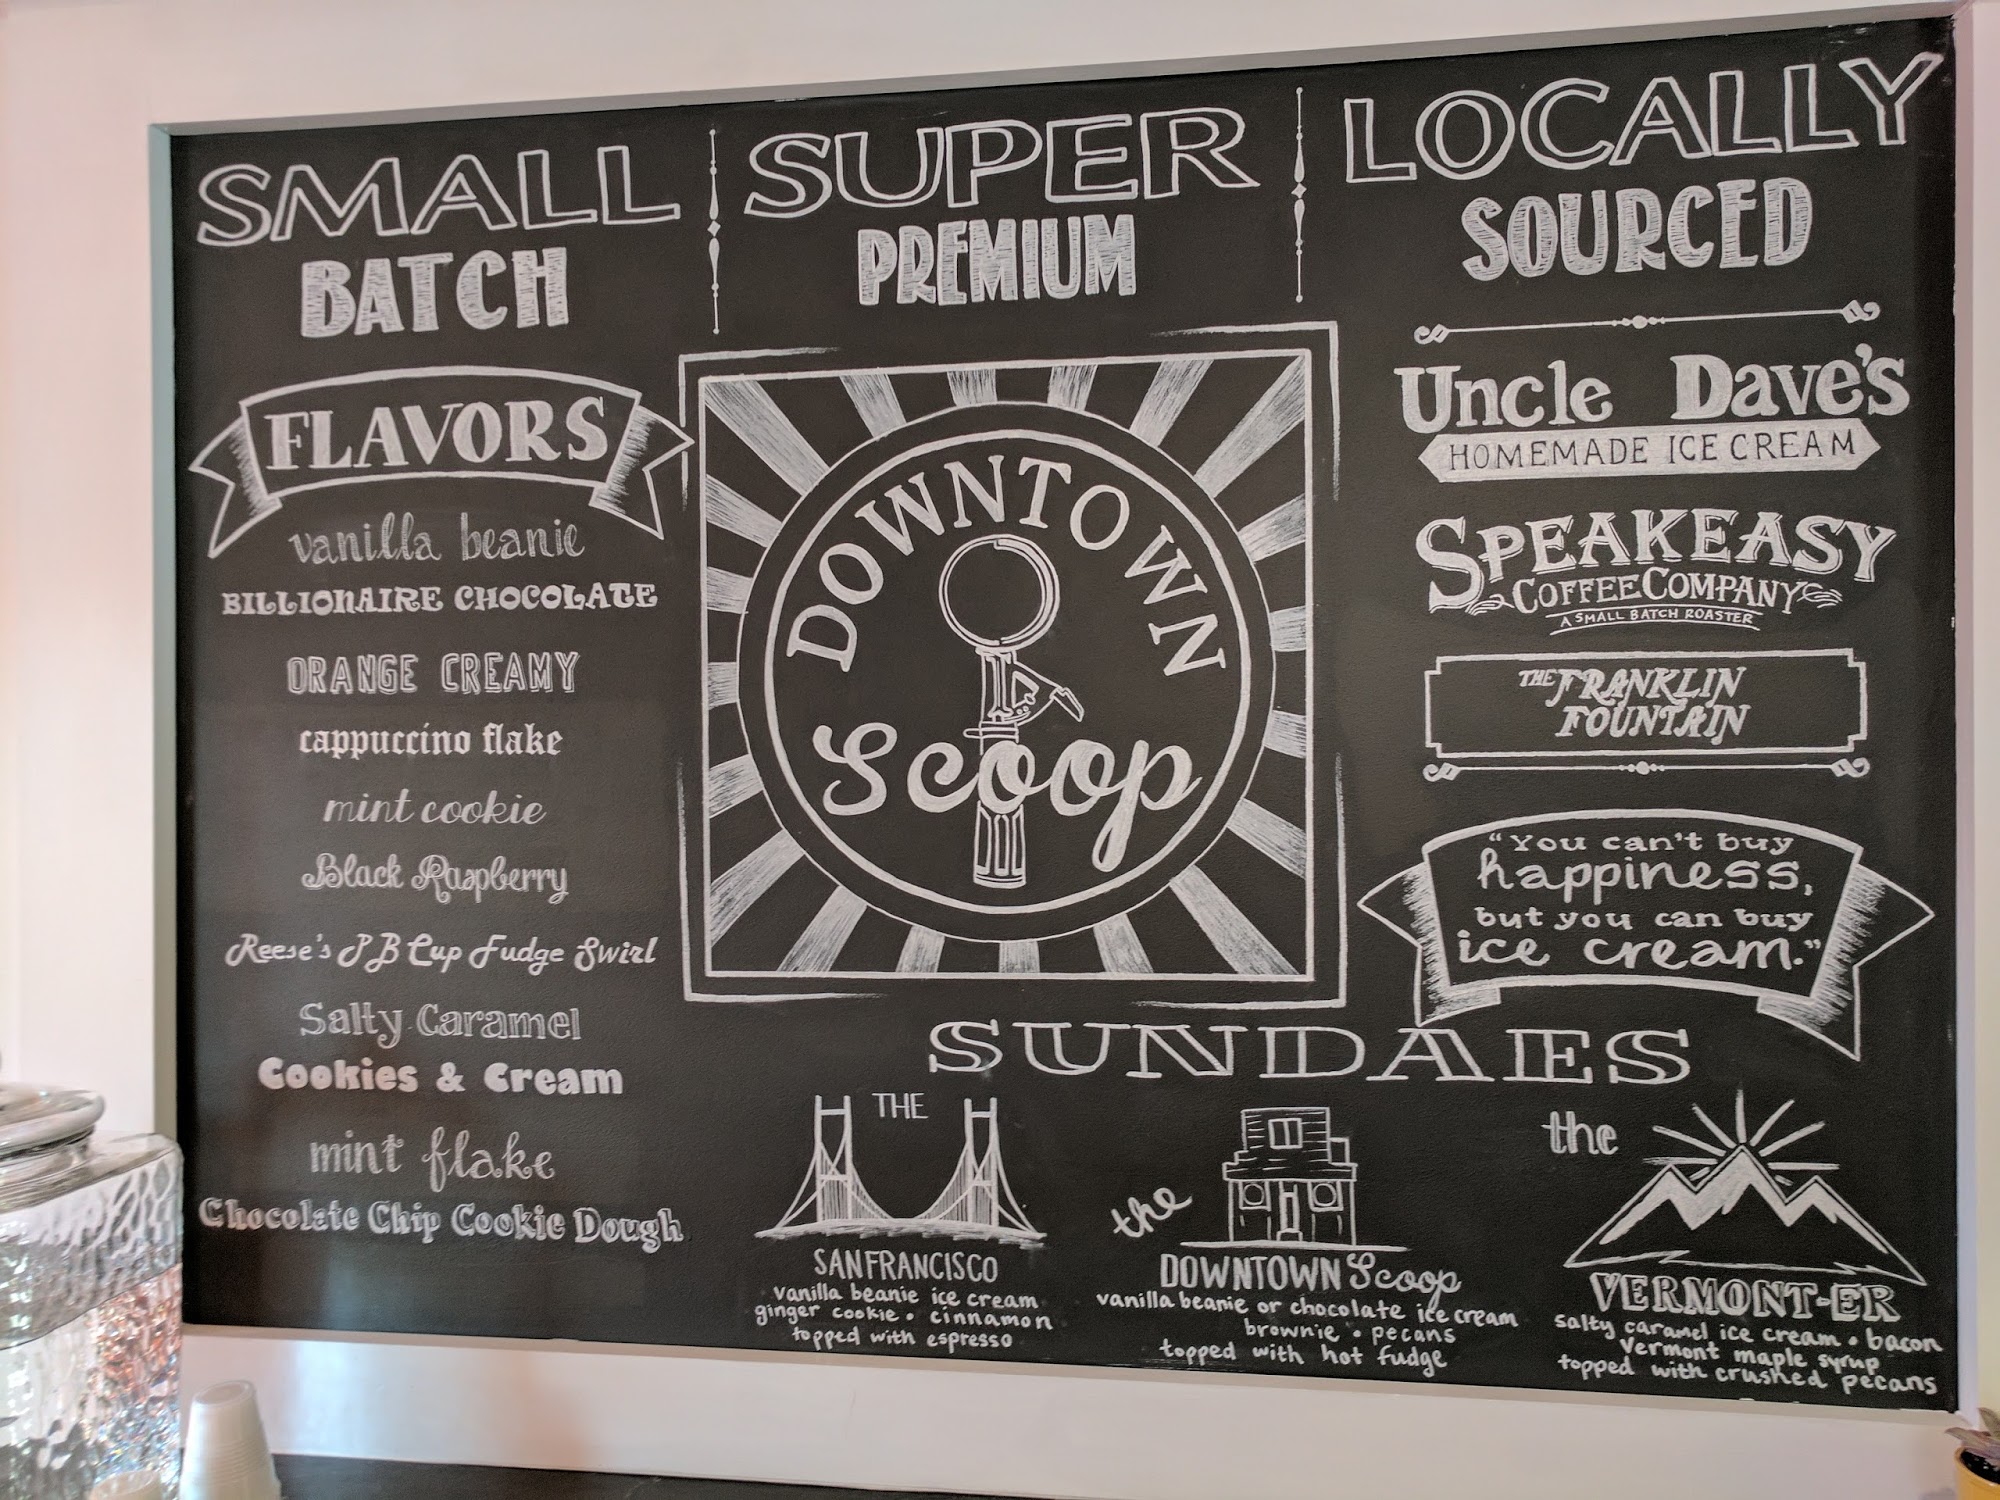 SMALL
BATCH
SUPER
PREMIUM
LOCALLY
SOURCED
FLAVORS
vanilla beanie
BILLIONAIRE CHOCOLATE
ORANGE CREAMY
cappuccino flake
mint cookie
Black Raspberry
Reese's PB Cup Fudge Swirl
Salty Caramel
Cookies & Cream
mint flake
Chocolate Chip Cookie Dough
DOWNTOWN
Scoop
Uncle Dave's
HOMEMADE ICE CREAM
SPEAKEASY
COFFEE COMPANY
A SMALL BATCH ROASTER
THE FRANKLIN
FOUNTAIN
"You can't buy
happiness,
but you can buy
ice cream."
SUNDAES
THE
SAN FRANCISCO
vanilla beanie ice cream
ginger cookie • cinnamon
topped with espresso
the
DOWNTOWN Scoop
vanilla beanie or chocolate ice cream
brownie • pecans
topped with hot fudge
the
VERMONT-ER
salty caramel ice cream • bacon
Vermont maple syrup
topped with crushed pecans